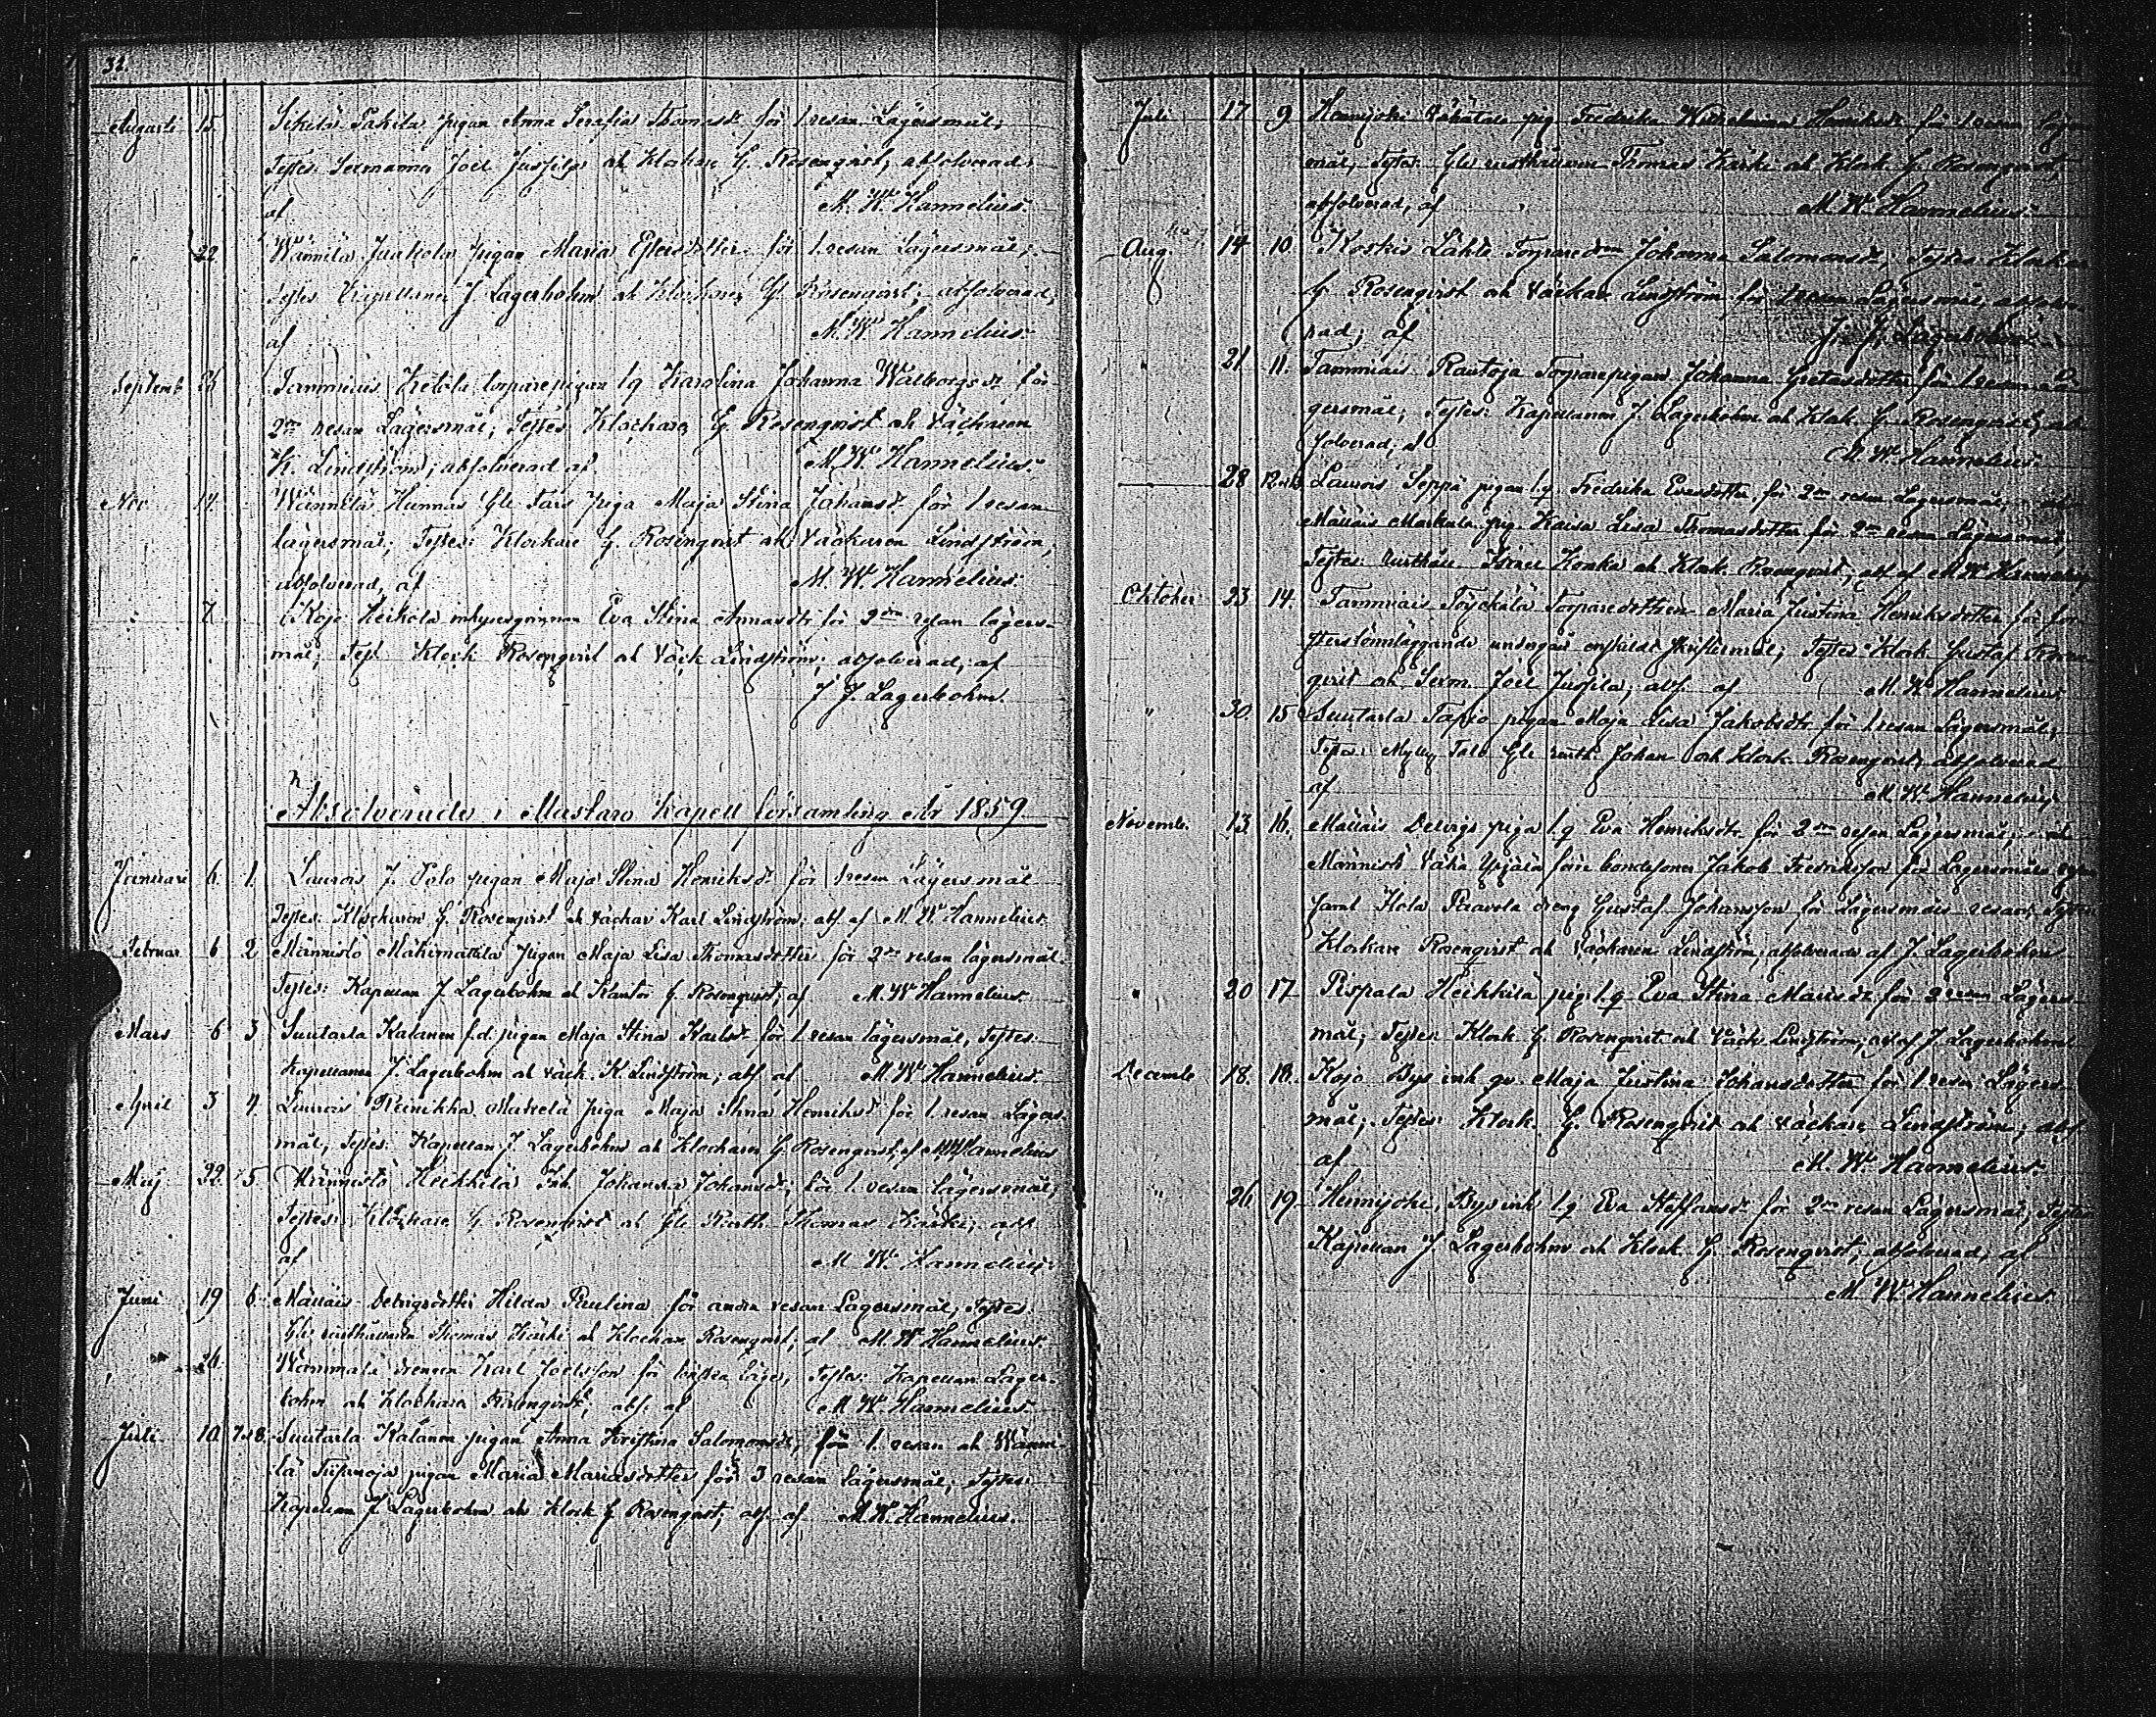 32.
Augusti 15. pigan Anna Serafia Thomasdr för 1 resan Lägersmål;
Testes: Joel Jusfila och Klockare G. Rosenqvist; absolverad
af M. W. Hannelius.
" 22 Wännilä pigan Maria Estersdotter för 1. resan Lägersmål;
Testes Capellanen J Lagerbohm och Klockaren G. Rosenqvist; absolverad,
af M. W. Hannelius.
Septemb 26 Tammiais Ketola torparepigan l.q Karolina Johanna Walborgsdr för
2dra resan Lägersmål; Testes Klockare G. Rosenqvist och Väckaren
K. Lindström; absolverad af M. W. Hannelius.
Nov 14. Wännilä Hunnas Gle Tars piga Maja Stina Johansdr för 1 resan
lägersmål; Testes: Klockare G. Rosenqvist och Väckaren Lindström;
absolverad, af M. W. Hannelius
" 7. Kojo Heikola inhysesqvinnan Eva Stina Annasdtr för 2dra resan lägers-
mål; Test Klock Rosenqvist och Väck Lindström; absolverad, af
J J. Lagerbohm.
Absolverade i Maskaro Kapell församling År 1859.
Januari 6. 1. Laurois J. Talo pigan Maja Stina Henriksdr för 1 resan Lägersmål
Testes: Klockaren G. Rosenqvist och Väckar Karl Lindström; abs. af M. W. Hannelius.
Februar 6 2 Männistö Mäkimattila Pigan Maja Lisa Thomasdotter för 2dra resan lägersmål.
Testes: Kapellan J Lagerbohm och Kantor G. Rosenqvist; af M. W. Hannelius.
Mars 6 3. Suutarla Kalanen f.d. pigan Maja Stina Karlsdr för 1 resan lägersmål, Testes:
Kapellanen J. Lagerbohm och Väck. K. Lindström; abs. af M. W. Hannelius.
April 3 4. Laurois Reinikka piga Maja Stina Henriksdr för 1. resan Lägers-
mål; Testes: Kapellan J. Lagerbohm och Klockaren G. Rosenqvist, af M W Hannelius
Maj 22. 5. Männistö Heikkilä Inh. Johanna Johansdr; för 1. resan lägersmål;
Testes: Klockare G Rosenqvist och Gle Rusth. Thomas Kärki; abs
af M. W. Hannelius.
Juni 19 6. Mällais Hilda Paulina för andra resan Lägersmål; Testes.
Gle rusthållaren Thomas Kärki och Klockar. Rosenqvist, af M. W. Hannelius.
" 26. drengen Karl Joelsson för läger, Testes: Kapellan Lager-
bohm och Klockare Rosenqvist; abs. af M W Hannelius
Juli 10. 7 o 8. Suutarla Kalanen pigan Anna Kristina Salomonsdr, för 1. resan och Wänni-
lä pigan Maria Mariasdotter för 3 resan lägersmål; Testes:
Kapellan J Lagerbohm och Klock G Rosenqvist; abs. af M. W. Hannelius.
Juli 17 9 Hennijoki pig Fredrika Wilhelmina Henriksdr för 1. resan läger-
mål, Testes: Gle rusthållaren Thomas Kärki och Klock G Rosenqvist,
absolverad, af M. W. Hannelius.
Aug. 14 10. Koskis Lähde Torpared:n Johanna Salomonsdr, Testes: Klockare
G. Rosenqvist och Väckar Lindström för 1 resan Lägersmål, absolve-
rad; af J. J. Lagerbohm.
" 21 11. Tammiais Rautoja Torparepigan Johanna Gretasdotter för 1. resan Lä-
gersmål; Testes: Kapellanen J. Lagerbohm och Klock. G. Rosenqvist, ab-
solverad; af M. W. Hannelius.
28 12 o 13 Laurois Seppä pigan l.q. Fredrika Evasdotter, för 2dra resan Lägersmål, och
Mällais Markula pig. Kaisa Lisa Thomasdotter för 2dra resan Lägersmål,
Testes: Israel Konka och Klock. Rosenqvist; abs. af M W Hannelius
Oktober 23 14. Tammiais Töyckälä Torparedottren Maria Justina Henriksdotter för fo-
sterslönnläggande undergår enskildt skriftermål; Testes Klock. Gustaf Rosen-
qvist och Joel Jusfila; abs. af M. W. Hannelius
" 30. 15 Suutarla Tapio pigan Maja Lisa Jakobsdtr för 1 resan Lägersmål;
Testes: Mylly Talo Gle rusth. Johan och Klock. Rosenqvist; absolverad
af M. W. Hannelius
Novemb. 13. 16. Mällais piga l.q Eva Henriksdtr för 2dra resan Lägersmål; och
Männistö Vähä förre bondesonen Jakob Fredriksson för Lägersmåls
samt Hola Paavola dreng Gustaf Johansson för Lägersmåls resan; Testes
Klockare Rosenqvist och Väckaren Lindström; absolverade af J. Lagerbohm
" 20 17 Pispala Heikkilä pig. l.q Eva Stina Mariasdr för 2 resan Lägers-
mål; Testes: Klock. G. Rosenqvist och Väck. Lindström; abs. af J. Lagerbohm
Decemb 18. 18. Kojo Bys inh. qv. Maja Justina Johansdotter för 1 resan Lägers-
mål; Testes: Klock. G. Rosenqvist och Väckare Lindström; abs
af M. W. Hannelius
" 26. 19. Hennijoki, Bys inh l.q Eva Staffansdr för 2dra resan Lägersmål; Testes
Kapellan J. Lagerbohm och Klock. G. Rosenqvist; absolverad, af
M. W. Hannelius